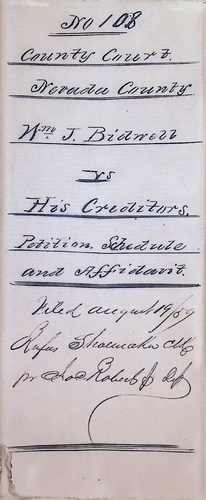 No 108
County Court.
Nevada County
Wm J. Bidwell
vs
His Creditors.
Petition, Schedule
and Affidavit.
Filed August 19/59
Rufus Shoemaker Clk
pr Jos Roberts Jr D